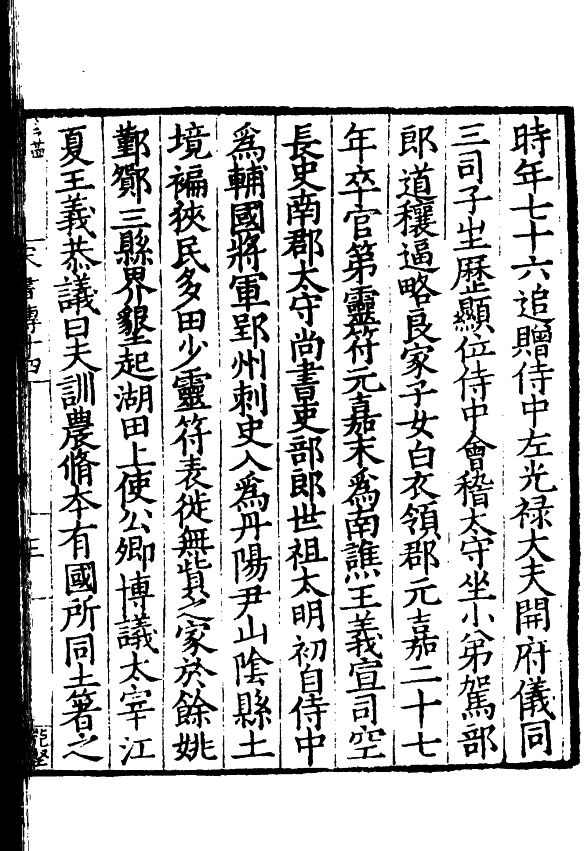 時年七十六追贈侍中左光祿大夫開府儀同
三司子山士歴顯位侍中會稽太守坐小弟駕部
郎道穰逼略良家子女白衣領郡元嘉二十七
年卒官第靈符元嘉末爲南譙王義宣司空
長史南郡太守尚書吏部郎世祖太明初自侍中
爲輔國將軍郢州刺史入爲丹陽尹山陰縣土
境褊狹民多田少靈符表徙無貲之家於餘姚
鄞鄮三縣界墾起湖田上使公卿博議太宰江
夏王義恭議曰夫訓農脩本有國所同土著之
書傳十四
三